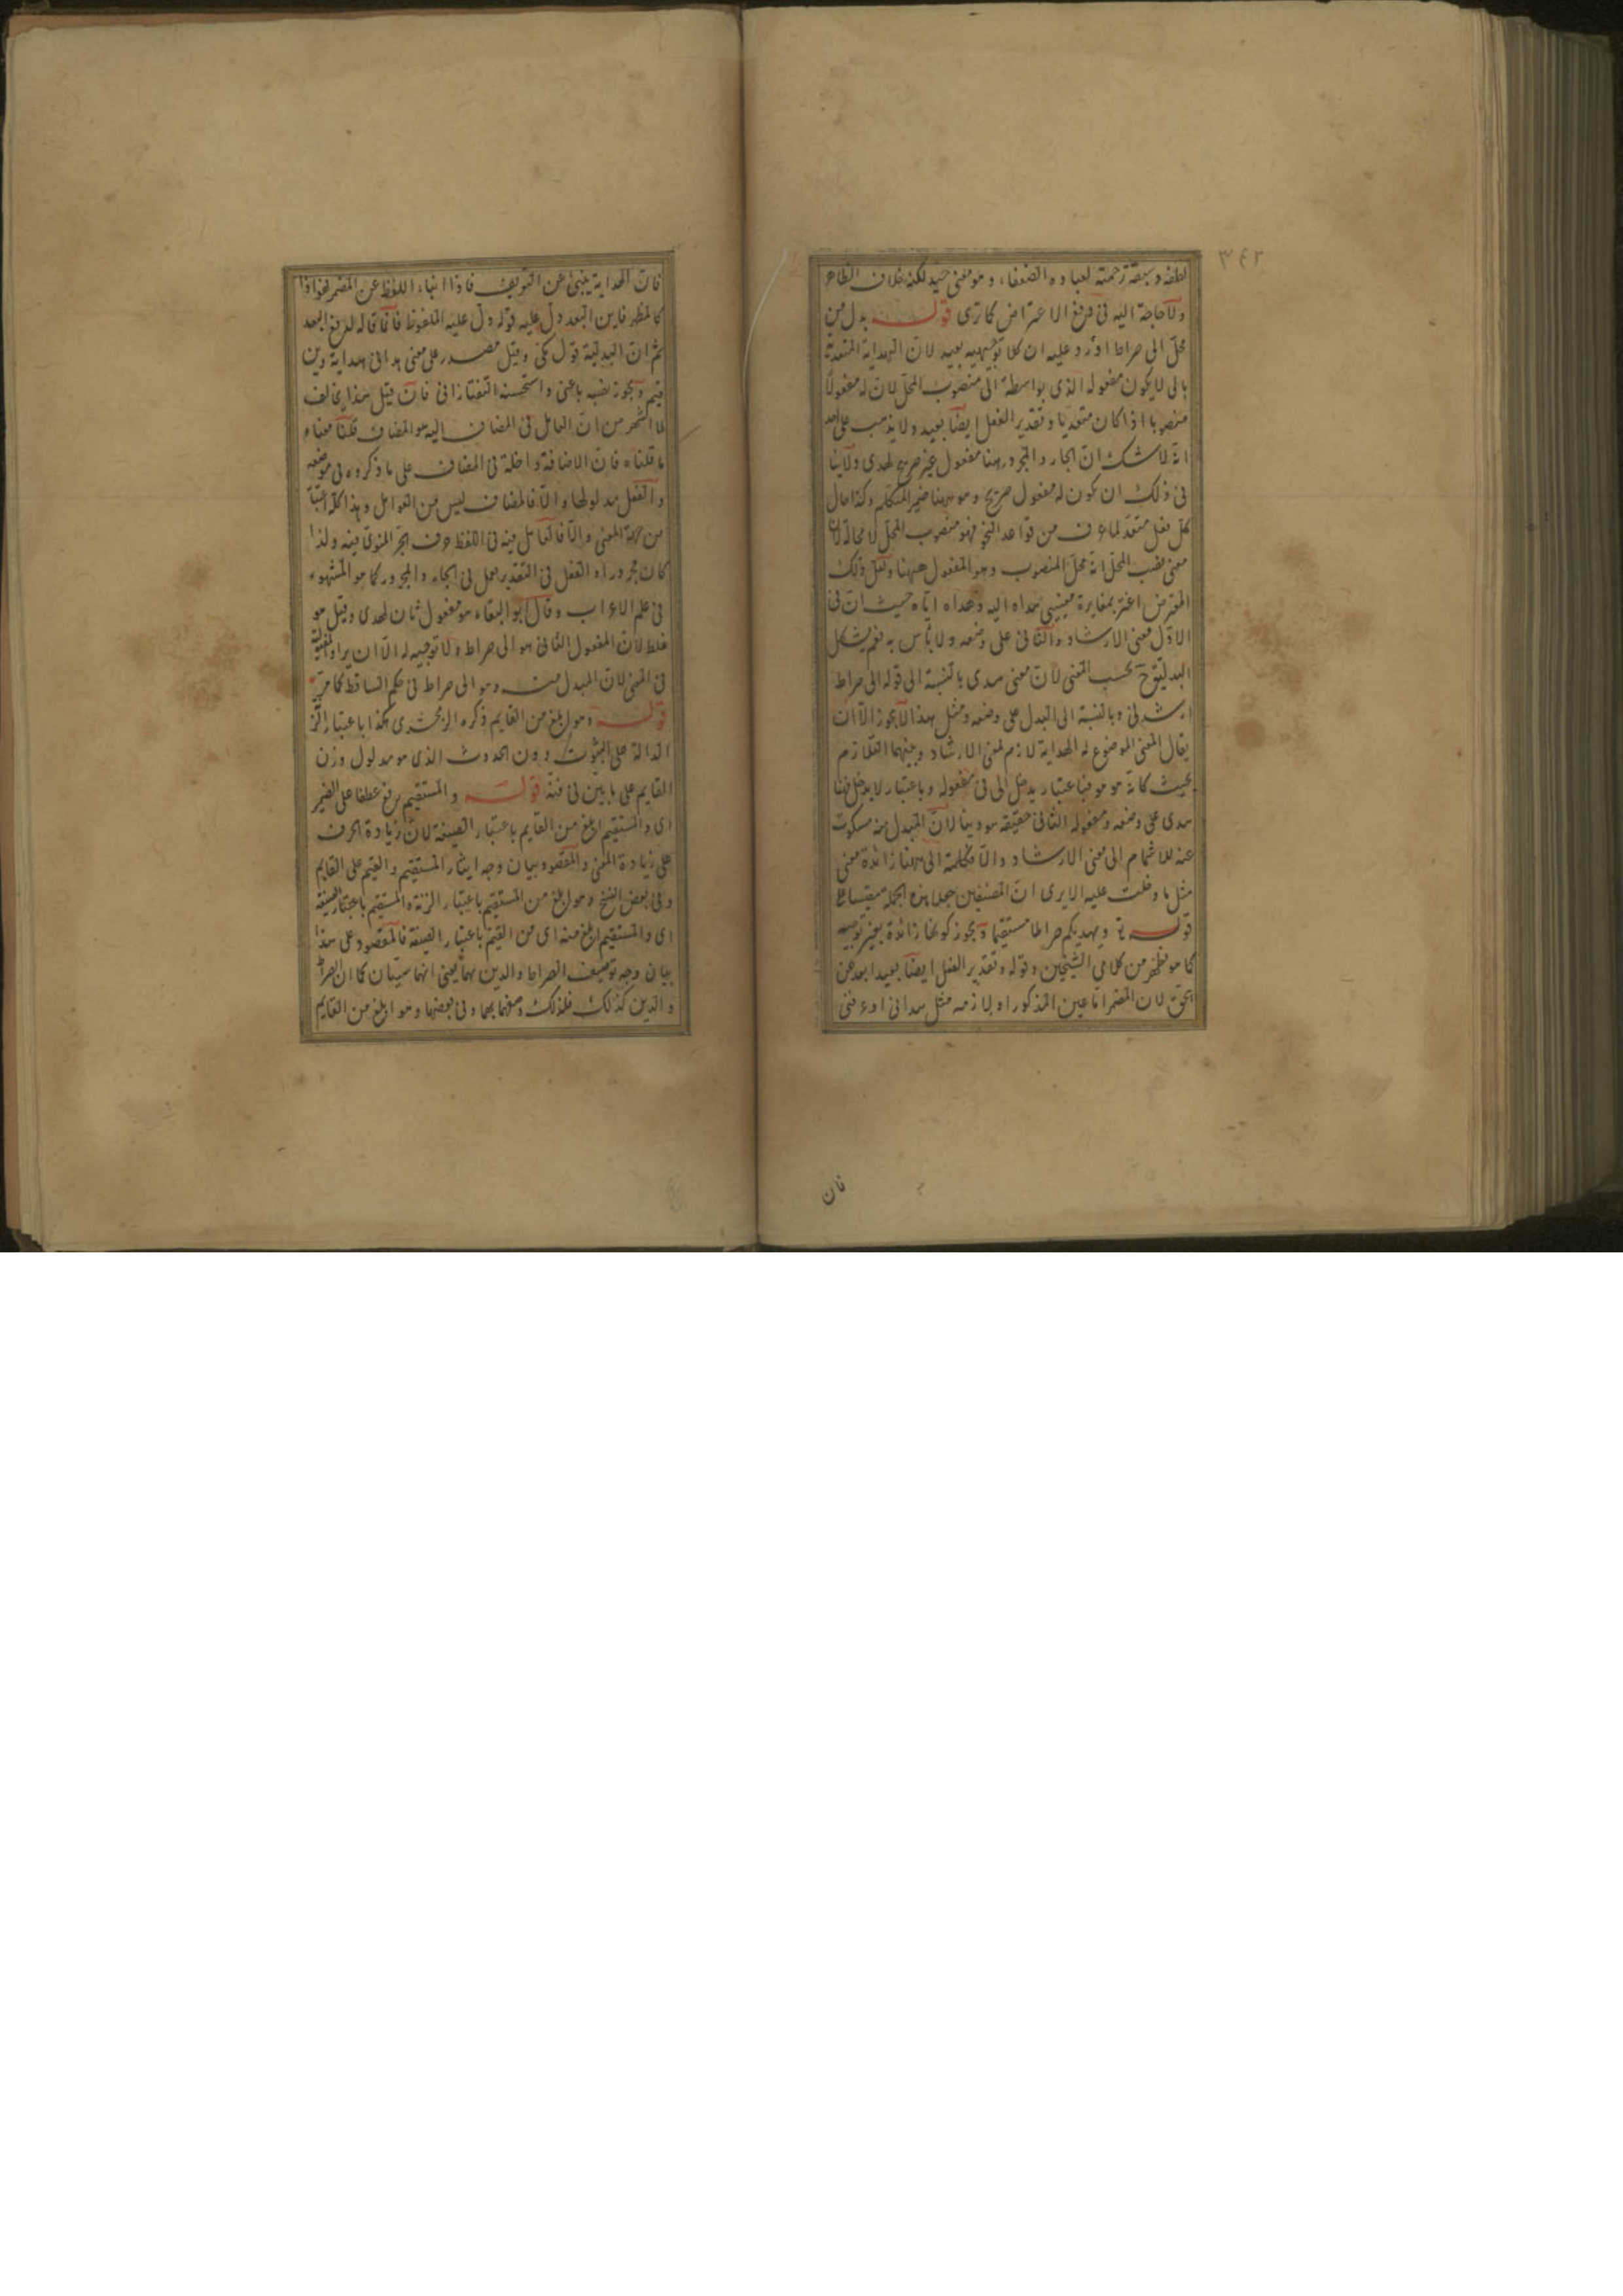 ٣٤٢
لطفه وسبقة رحمته لعباده الضعفاء وهو معنى جيد لكنه خلاف الظاهر
ولا حاجة اليه فى دفع الاعتراض كما ترى قوله بدل من
محل الى صراط اورد عليه ان كلا توجيهيه بعيد لان الهداية المتعدية
بالى لا يكون مفعوله الذى بواسطة الى منصوب المحل لان له مفعولا
منصوبا اذا كان متعديا وتقدير الفعل ايضا بعيد ولا يذهب على احد
انه لا شك ان الجار والمجرور ههنا مفعول غير صريح لهدى ولا ينا
فى ذلك ان يكون له مفعول صريح وهو ههنا ضمير المتكلم وكذا حال
كل فعل متعد لما عرف من قواعد النحو فهو منصوب المحل لا محالة لان
معنى نصب المحل انه محل المنصوب وهو المفعول ههنا ولعل ذلك
المعترض اغتر بمغايرة معنيى هداه اليه وهداه اياه حيث ان فى
الاول معنى الارشاد والثانى على وضعه ولا بأس به نعم يشكل
البدلية ح بحسب المعنى لان معنى هدى بالنسبة الى قوله الى صراط
ارشدنى وبالنسبة الى البدل على وضعه ومثل هذا لا يجوز الا ان
يقال المعنى الموضوع له الهداية لازم لمعنى الارشاد وبينهما التلازم
بحيث كانه هو هو فباعتبار يدخل الى فى مفعوله وباعتبار لا يدخل فهنا
هدى على وضعه ومفعوله الثانى حقيقة هو دينا لان المبدل منه مسكوت
عنه للاشمام الى معنى الارشاد والا فكلمة الى ههنا زائدة معنى
مثل ما دخلت عليه الا يرى ان المصنفين جعلا هذه الجملة مقيسا على
قوله تع ويهديكم صراطا مستقيما ويجوز كونها زائدة بغير توجيه
كما هو يظهر من كلامى الشيخين وقوله وتقدير الفعل ايضا بعيد ابعد عن
الحق لان المضمر اما عين المذكور او لازمه مثل هدانى او عرفنى
فان
فان الهداية ينبئ عن التعريف فاذا انباء اللفظ عن المضمر نحو اذا
كالمظهر فاين البعد دل عليه قوله دل عليه الملفوظ فانما قاله لدفع البعد
ثم ان البدلية قول مكى وقيل مصدر على معنى هدانى هداية دين
قيم ويجوز نصبه باعنى واستحسنه التفتازانى فان قيل هذا يخالف
لما اشتهر من ان العامل فى المضاف اليه هو المضاف قلنا معناه
ما قلناه فان الاضافة داخلة فى المضاف على ما ذكروه فى موضعه
والفعل مدلولها والا فالمضاف ليس من العوامل وهذا كله اعتبا
من جهة المعنى والا فالعامل فيه فى اللفظ حرف الجر المنوى فيه ولذا
كان مجرورا والفعل فى التقدير يعمل فى الجار والمجرور كما هو المشهور
فى علم الاعراب وقال ابو البقاء هو مفعول ثان لهدى وقيل هو
غلط لان المفعول الثانى هو الى صراط ولا توجيه له الا ان يراد المفعولية
فى المعنى لان المبدل منه وهو الى صراط فى حكم الساقط كما مر
قوله وهو ابلغ من القايم ذكره الزمخشرى هكذا باعتبار الز
الدالة على الثبوت دون الحدوث الذى هو مدلول وزن
القايم على ما بين فى فنه قوله والمستقيم برفع عطفا على الضمير
اى والمستقيم ابلغ من القايم باعتبار الصيغة لان زيادة الحرف
على زيادة المعنى والمقصود بيان وجه ايثار المستقيم والقيم على القايم
وفى بعض النسخ وهو ابلغ من المستقيم باعتبار الزنة والمستقيم باعتبار الصيغة
اى والمستقيم ابلغ منه اى من القيم باعتبار الصيغة فالمقصود على هذا
بيان وجه توصيف الصراط والدين بهما يعنى انهما سيان كما ان الصراط
والدين كذلك فلذلك وصفهما بهما وفى بعضها وهو ابلغ من القايم